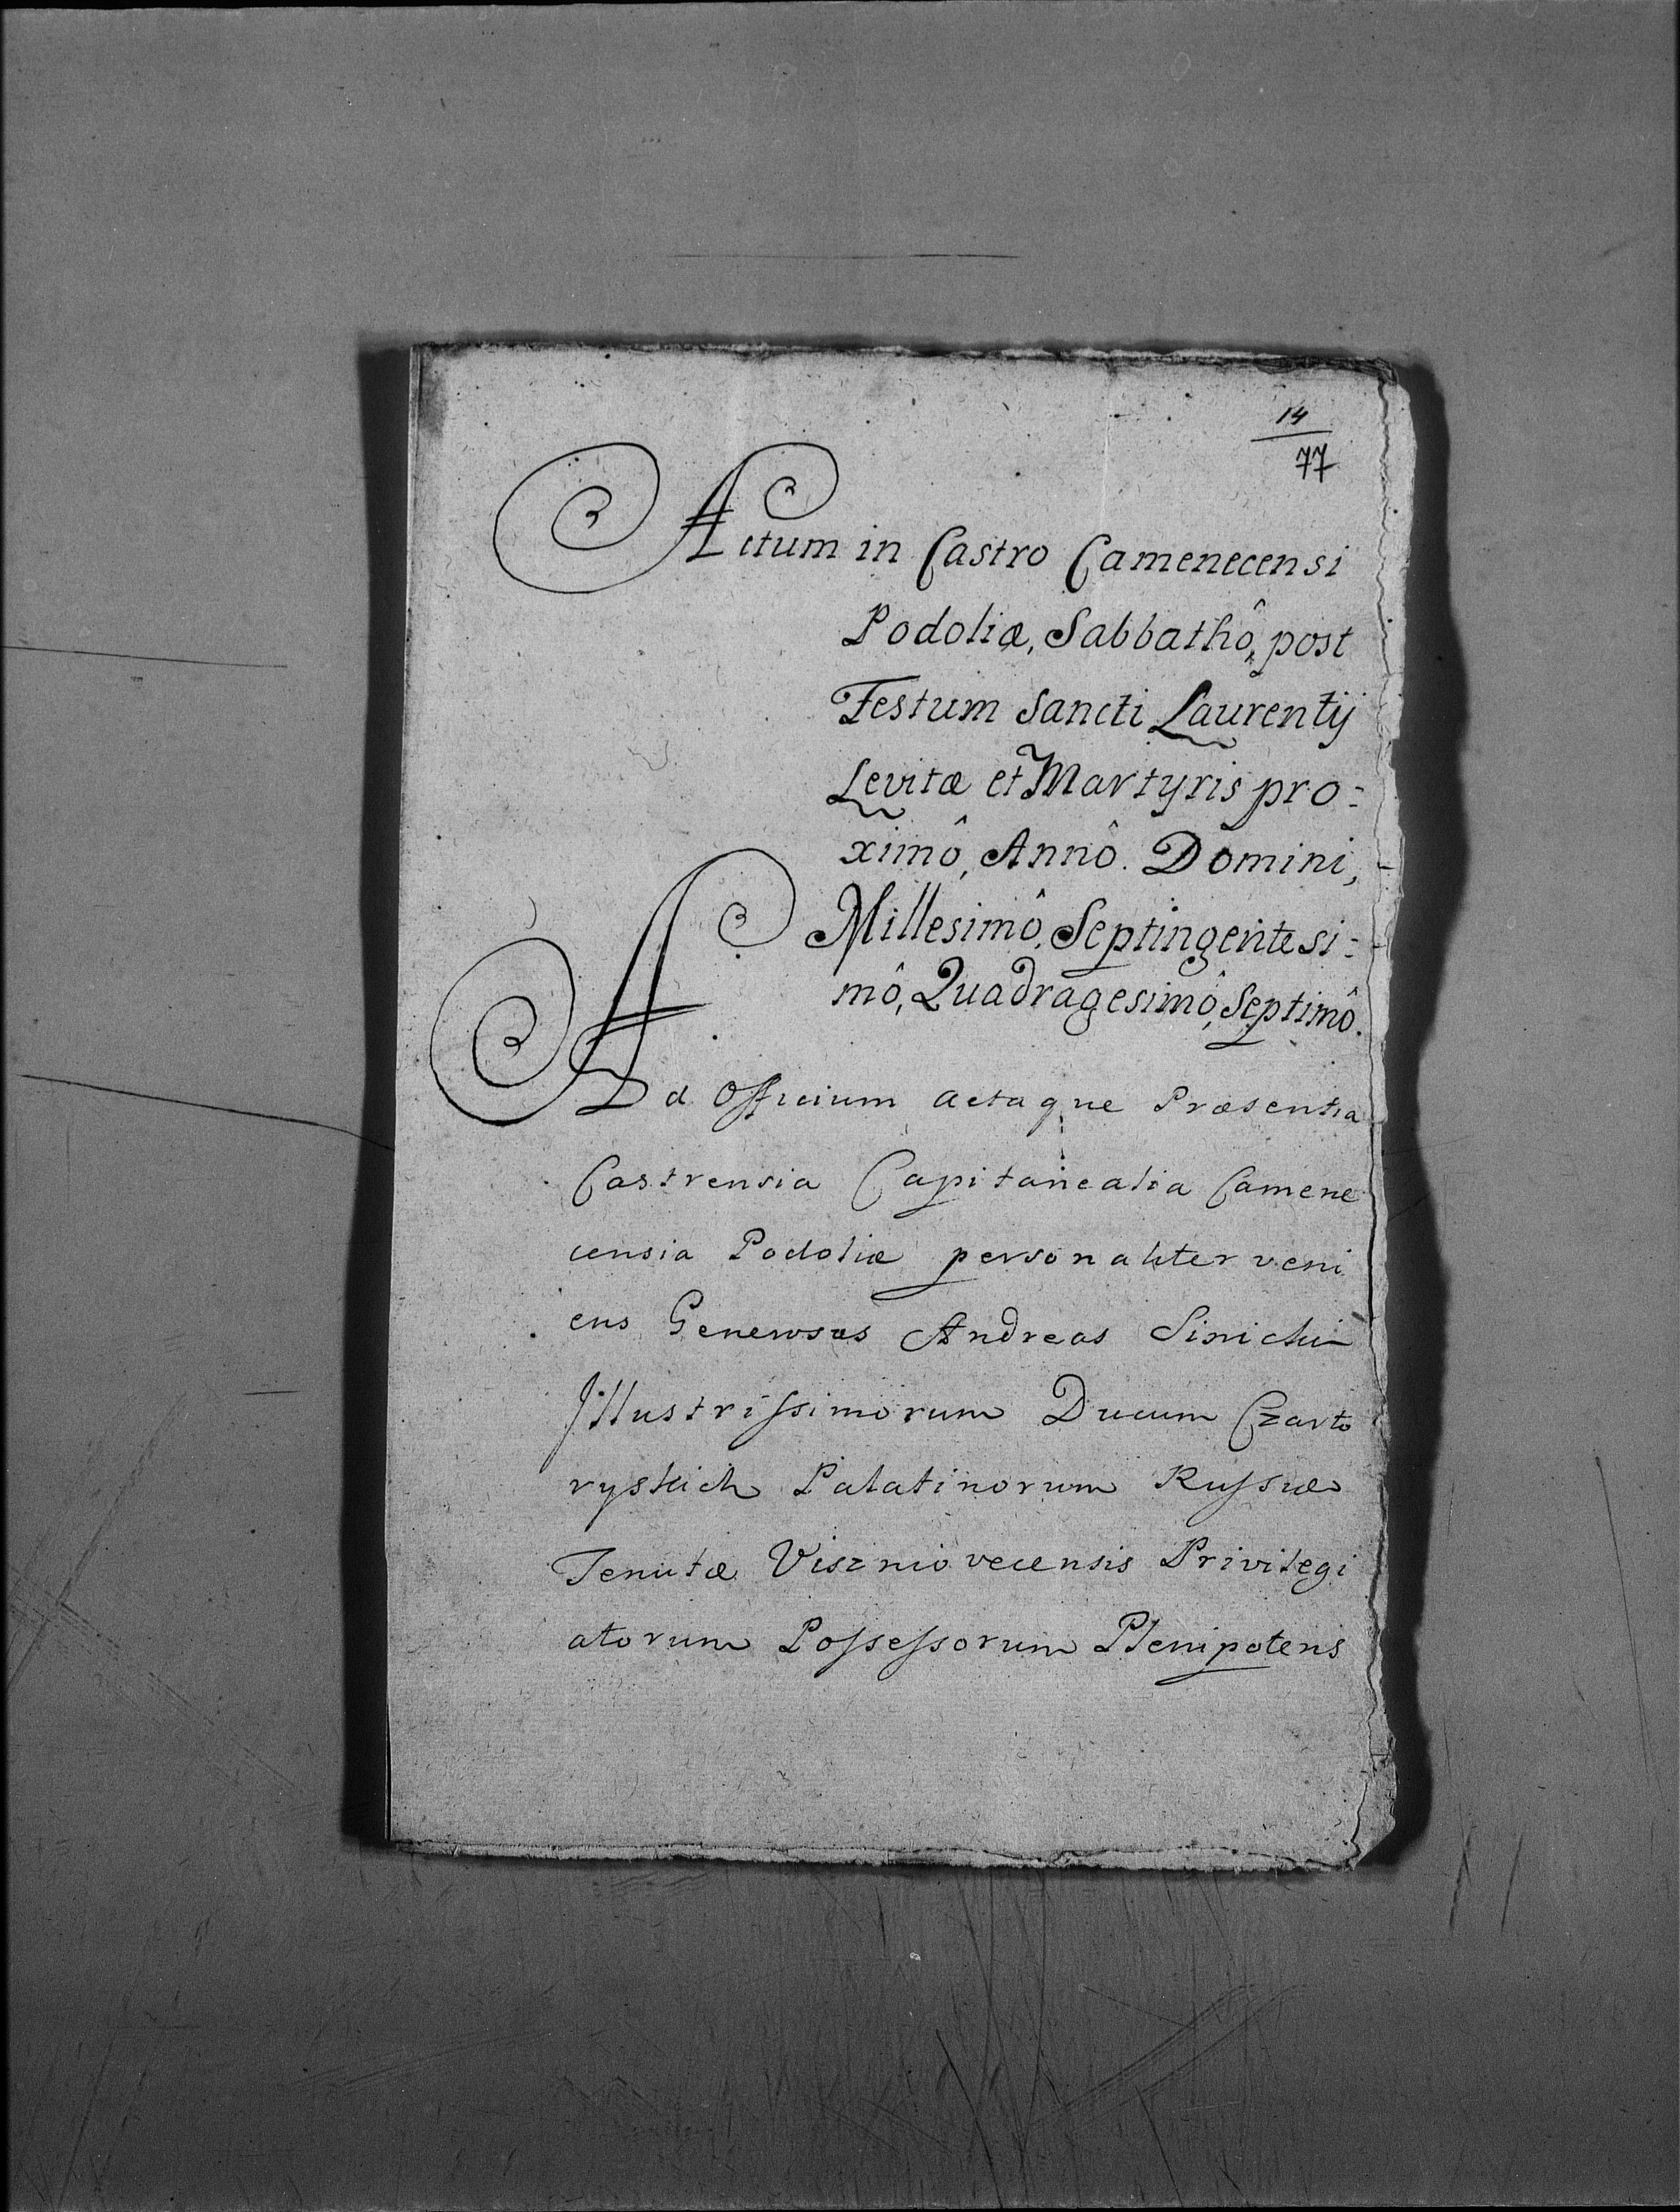 14
77
Actum in Castro Camenecensi
Podoliæ, Sabbathô, post
Festum Sancti Laurentij
Levitæ et Martyris pro:
ximô, Annô. Domini,
Millesimô, Septingentesi:
mô, Quadragesimô, Septimô.
Ad Officium Actaque Præsentia
Castrensia Capitanealia Camene
censia Podoliæ personaliter veni
ens Generosus Andreas
Illustrissimorum Ducum Czarto
ryskich Palatinorum Russiæ
Tenutæ Viszniovecensis Privilegi
atorum Possessorum Plenipotens